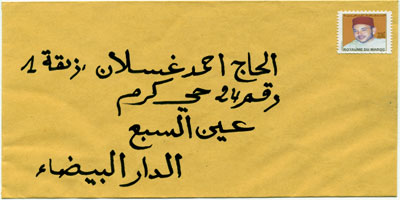 الحاج احمد غسلان ،زنقة 1
رقم 24 حي كرم
عين السبع
الدار البيضاء
ROYAUME DU MAROC